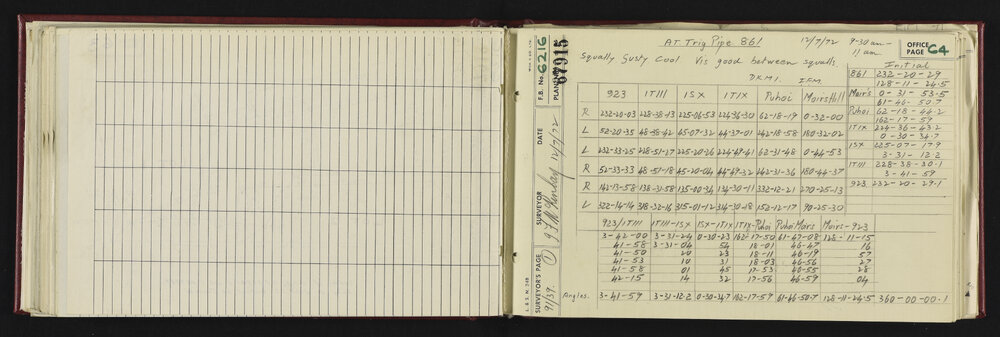 AT Trig Pipe 861 12/7/72 9-30am - 11am OFFICE PAGE C4
Squally Gusty Cool Vis good between squalls.
DKM1. I.F.M.
Initial
861 232-20-29
128-11-24.5
Moir's 0-31-53.5
61-46-50.7
Puhoi 62-18-44.2
162-17-59
ITIX 224-36-43.2
0-30-34.7
ISX 225-07-17.9
3-31-12.2
ITIII 228-38-30.1
3-41-59
923 232-20-29.1
923 ITIII ISX ITIX Puhoi Moirs Hill
R 232-20-03 228-38-13 225-06-53 224-36-30 62-18-19 0-32-00
L 52-20-35 48-58-42 45-07-32 44-37-01 242-18-58 180-32-02
L 232-33-25 228-51-27 225-20-26 224-49-41 62-31-48 0-44-53
R 52-33-33 48-51-18 45-20-04 44-49-32 242-31-36 180-44-37
R 142-13-58 138-31-58 135-00-34 134-30-11 332-12-21 270-25-13
L 322-14-14 318-32-16 315-01-12 314-30-18 152-12-17 90-25-30
923/ITIII ITIII-ISX ISX-ITIX ITIX-Puhoi Puhoi Moirs Moirs-923
3-42-00 3-31-24 0-30-23 162-17-50 61-47-08 128-11-15
41-58 3-31-04 54 18-01 46-47 16
41-50 20 23 18-11 46-19 57
41-53 10 31 18-03 46-56 27
41-58 01 45 17-53 46-55 28
42-15 14 32 17-56 46-59 04
Angles. 3-41-59 3-31-12.2 0-30-34.7 162-17-59 61-46-50.7 128-11-24.5 360-00-00.1
F.B. No. 6216
PLAN 67915
DATE 12/7/72
SURVEYOR
SURVEYOR'S PAGE 1
91/39.
L. & S. N. 24B